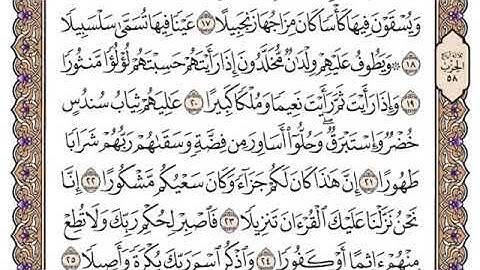 وَيُسْقَوْنَ فِيهَا كَأْسًا كَانَ مِزَاجُهَا زَنجَبِيلًا ١٧ عَيْنًا فِيهَا تُسَمَّىٰ سَلْسَبِيلًا
١٨ ۞ وَيَطُوفُ عَلَيْهِمْ وِلْدَٰنٌ مُّخَلَّدُونَ إِذَا رَأَيْتَهُمْ حَسِبْتَهُمْ لُؤْلُؤًا مَّنثُورًا
١٩ وَإِذَا رَأَيْتَ ثَمَّ رَأَيْتَ نَعِيمًا وَمُلْكًا كَبِيرًا ٢٠ عَٰلِيَهُمْ ثِيَابُ سُندُسٍ
خُضْرٌ وَإِسْتَبْرَقٌ ۖ وَحُلُّوٓا۟ أَسَاوِرَ مِن فِضَّةٍ وَسَقَىٰهُمْ رَبُّهُمْ شَرَابًا
طَهُورًا ٢١ إِنَّ هَٰذَا كَانَ لَكُمْ جَزَآءً وَكَانَ سَعْيُكُم مَّشْكُورًا ٢٢ إِنَّا
نَحْنُ نَزَّلْنَا عَلَيْكَ ٱلْقُرْءَانَ تَنزِيلًا ٢٣ فَٱصْبِرْ لِحُكْمِ رَبِّكَ وَلَا تُطِعْ
مِنْهُمْ ءَاثِمًا أَوْ كَفُورًا ٢٤ وَٱذْكُرِ ٱسْمَ رَبِّكَ بُكْرَةً وَأَصِيلًا ٢٥
ثلاثة أرباع
الحزب
٥٨